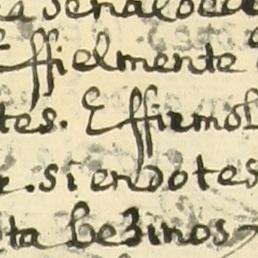 a señalo
Effielmente
tes. Effirmo
siendotes
ta bezinos